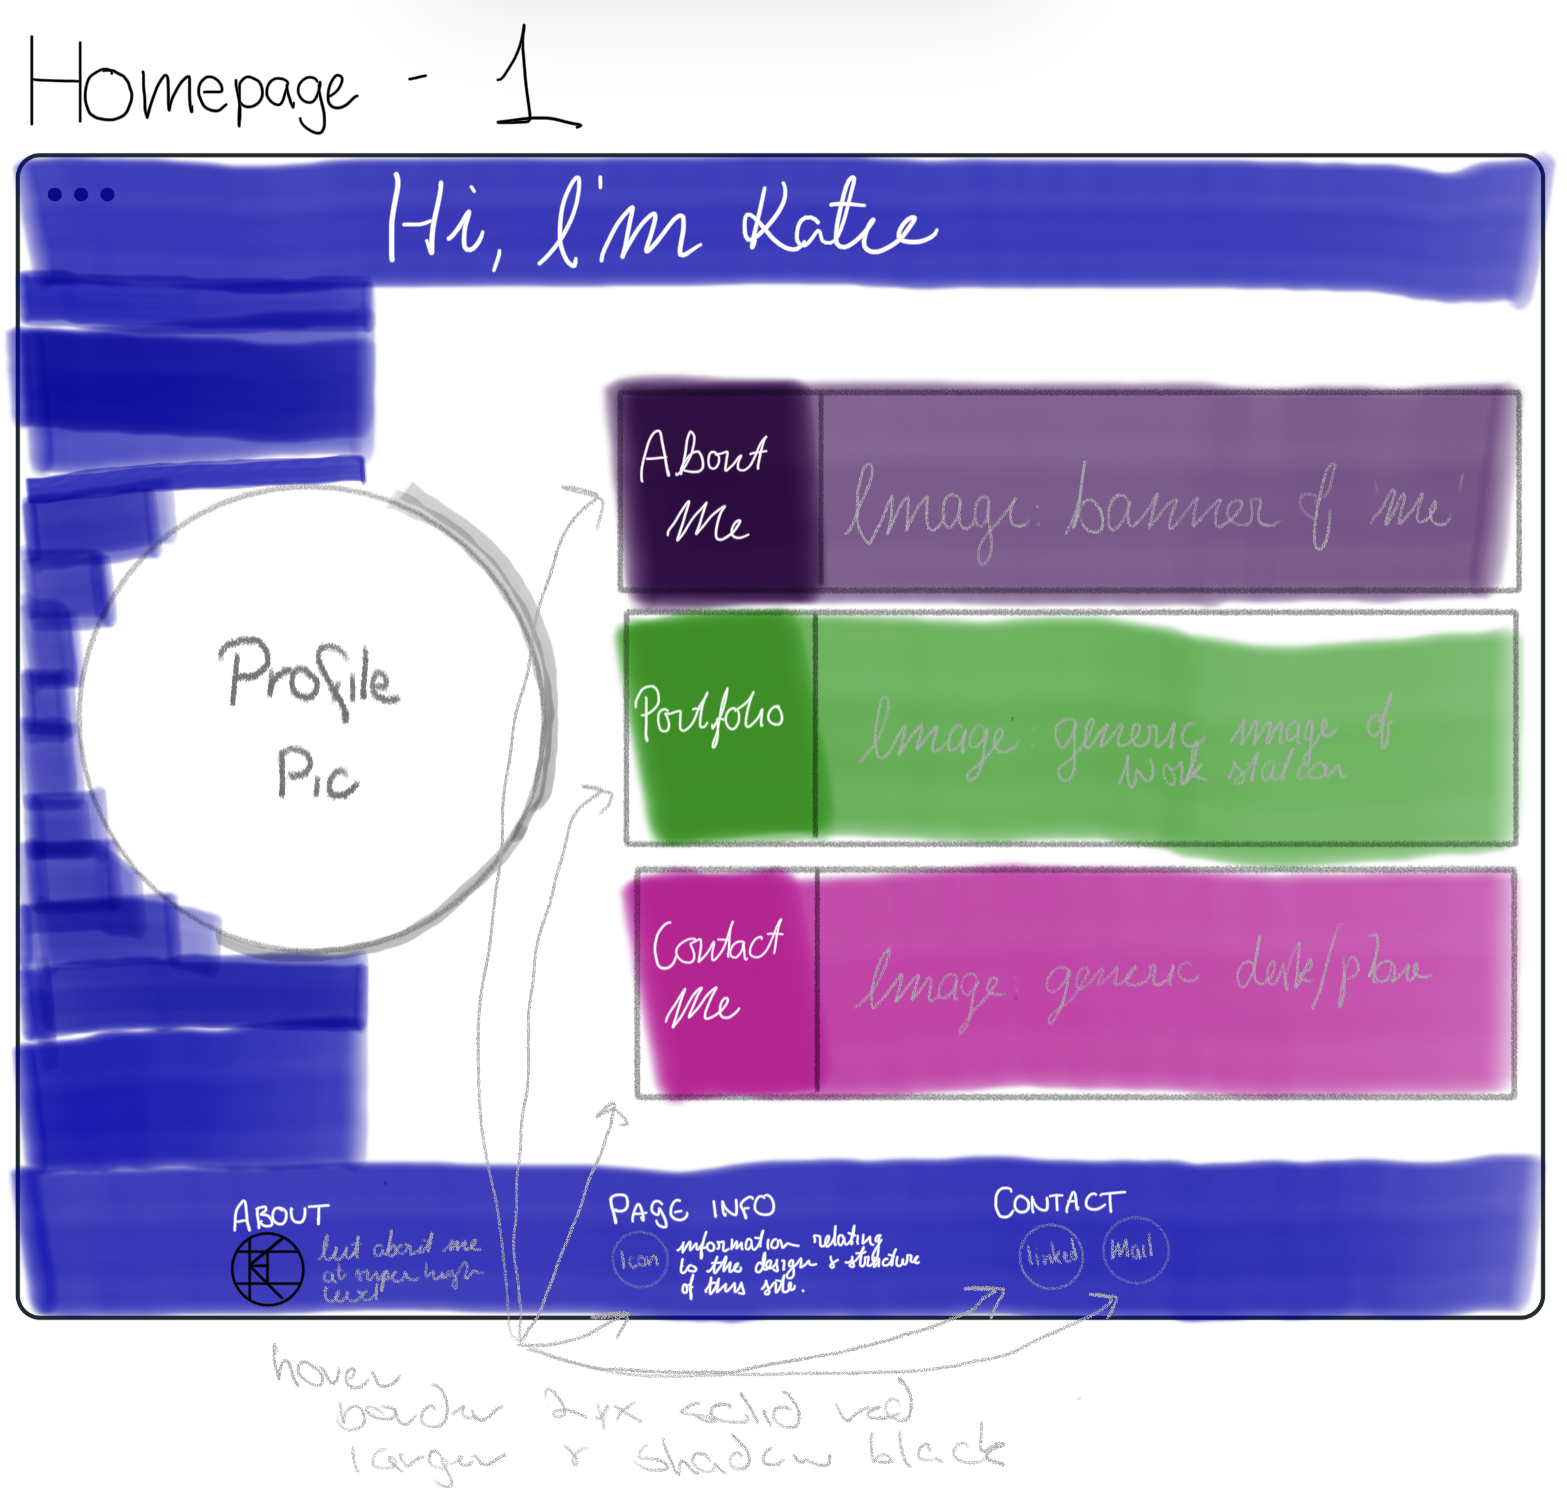 Homepage - 1
Hi, I'm Katie
Profile
Pic
About
Me
Image: banner of 'me'
Portfolio
Image: generic image of
work station
Contact
Me
Image: generic desk/phone
ABOUT
about me
at super high
level
PAGE INFO
Icon
information relating
to the design & structure
of this site.
CONTACT
linked
Mail
hover
border 2px solid red
larger & shadow black